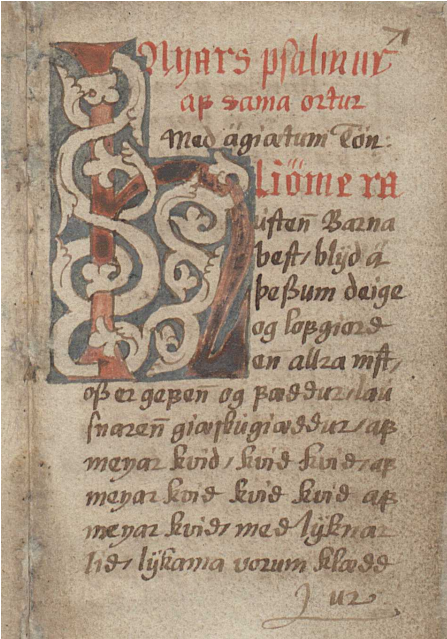 Nyars psalmur
af sama ortur
Med ägiætum Tön:
Hliöme ra
usteñ Barna
best, blijd ä
þeßum deige
og lofgiord
en allra mest,
oß er gefeñ og fæddur, lau
snareñ giæskugiæddur, af
meyar kvid, kvid kvid, af
meyar kvid kvid kvid af
meyar kvid, med lijknar
lid, lijkama vorum klædd
ur